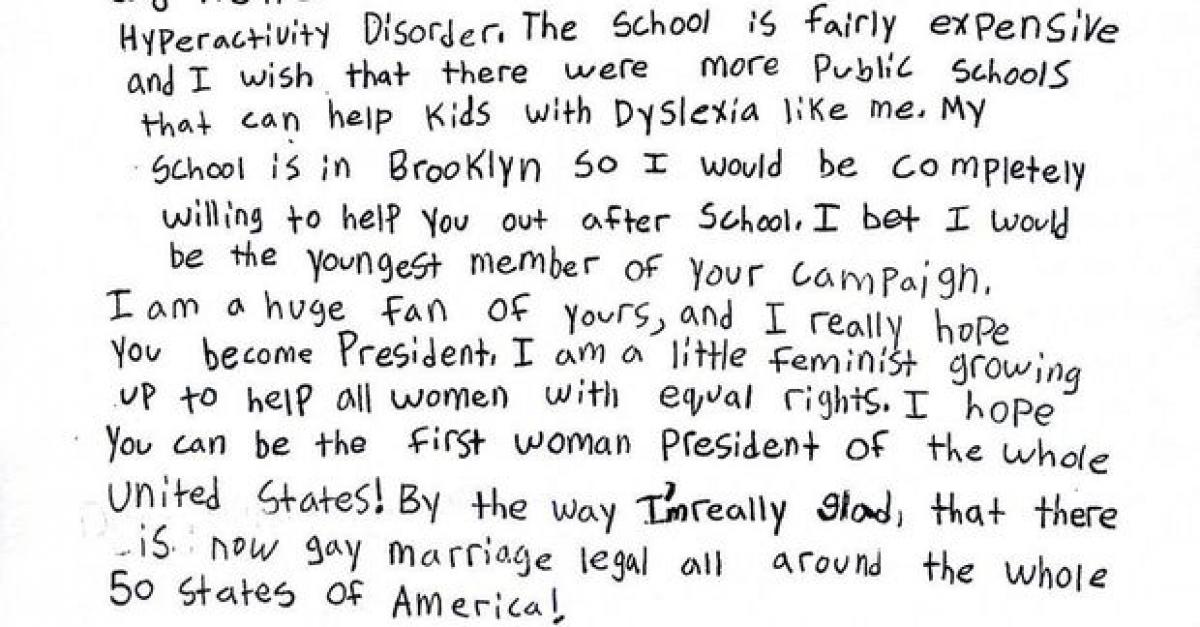 Hyperactivity Disorder. The School is fairly expensive
and I wish that there were more Public Schools
that can help Kids with Dyslexia like me. My
School is in Brooklyn so I would be completely
willing to help you out after School. I bet I would
be the youngest member of your campaign.
I am a huge fan of yours, and I really hope
you become President. I am a little feminist growing
up to help all women with equal rights. I hope
You can be the first woman President of the whole
United States! By the way I'm really glad, that there
is now gay marriage legal all around the whole
50 states of America!